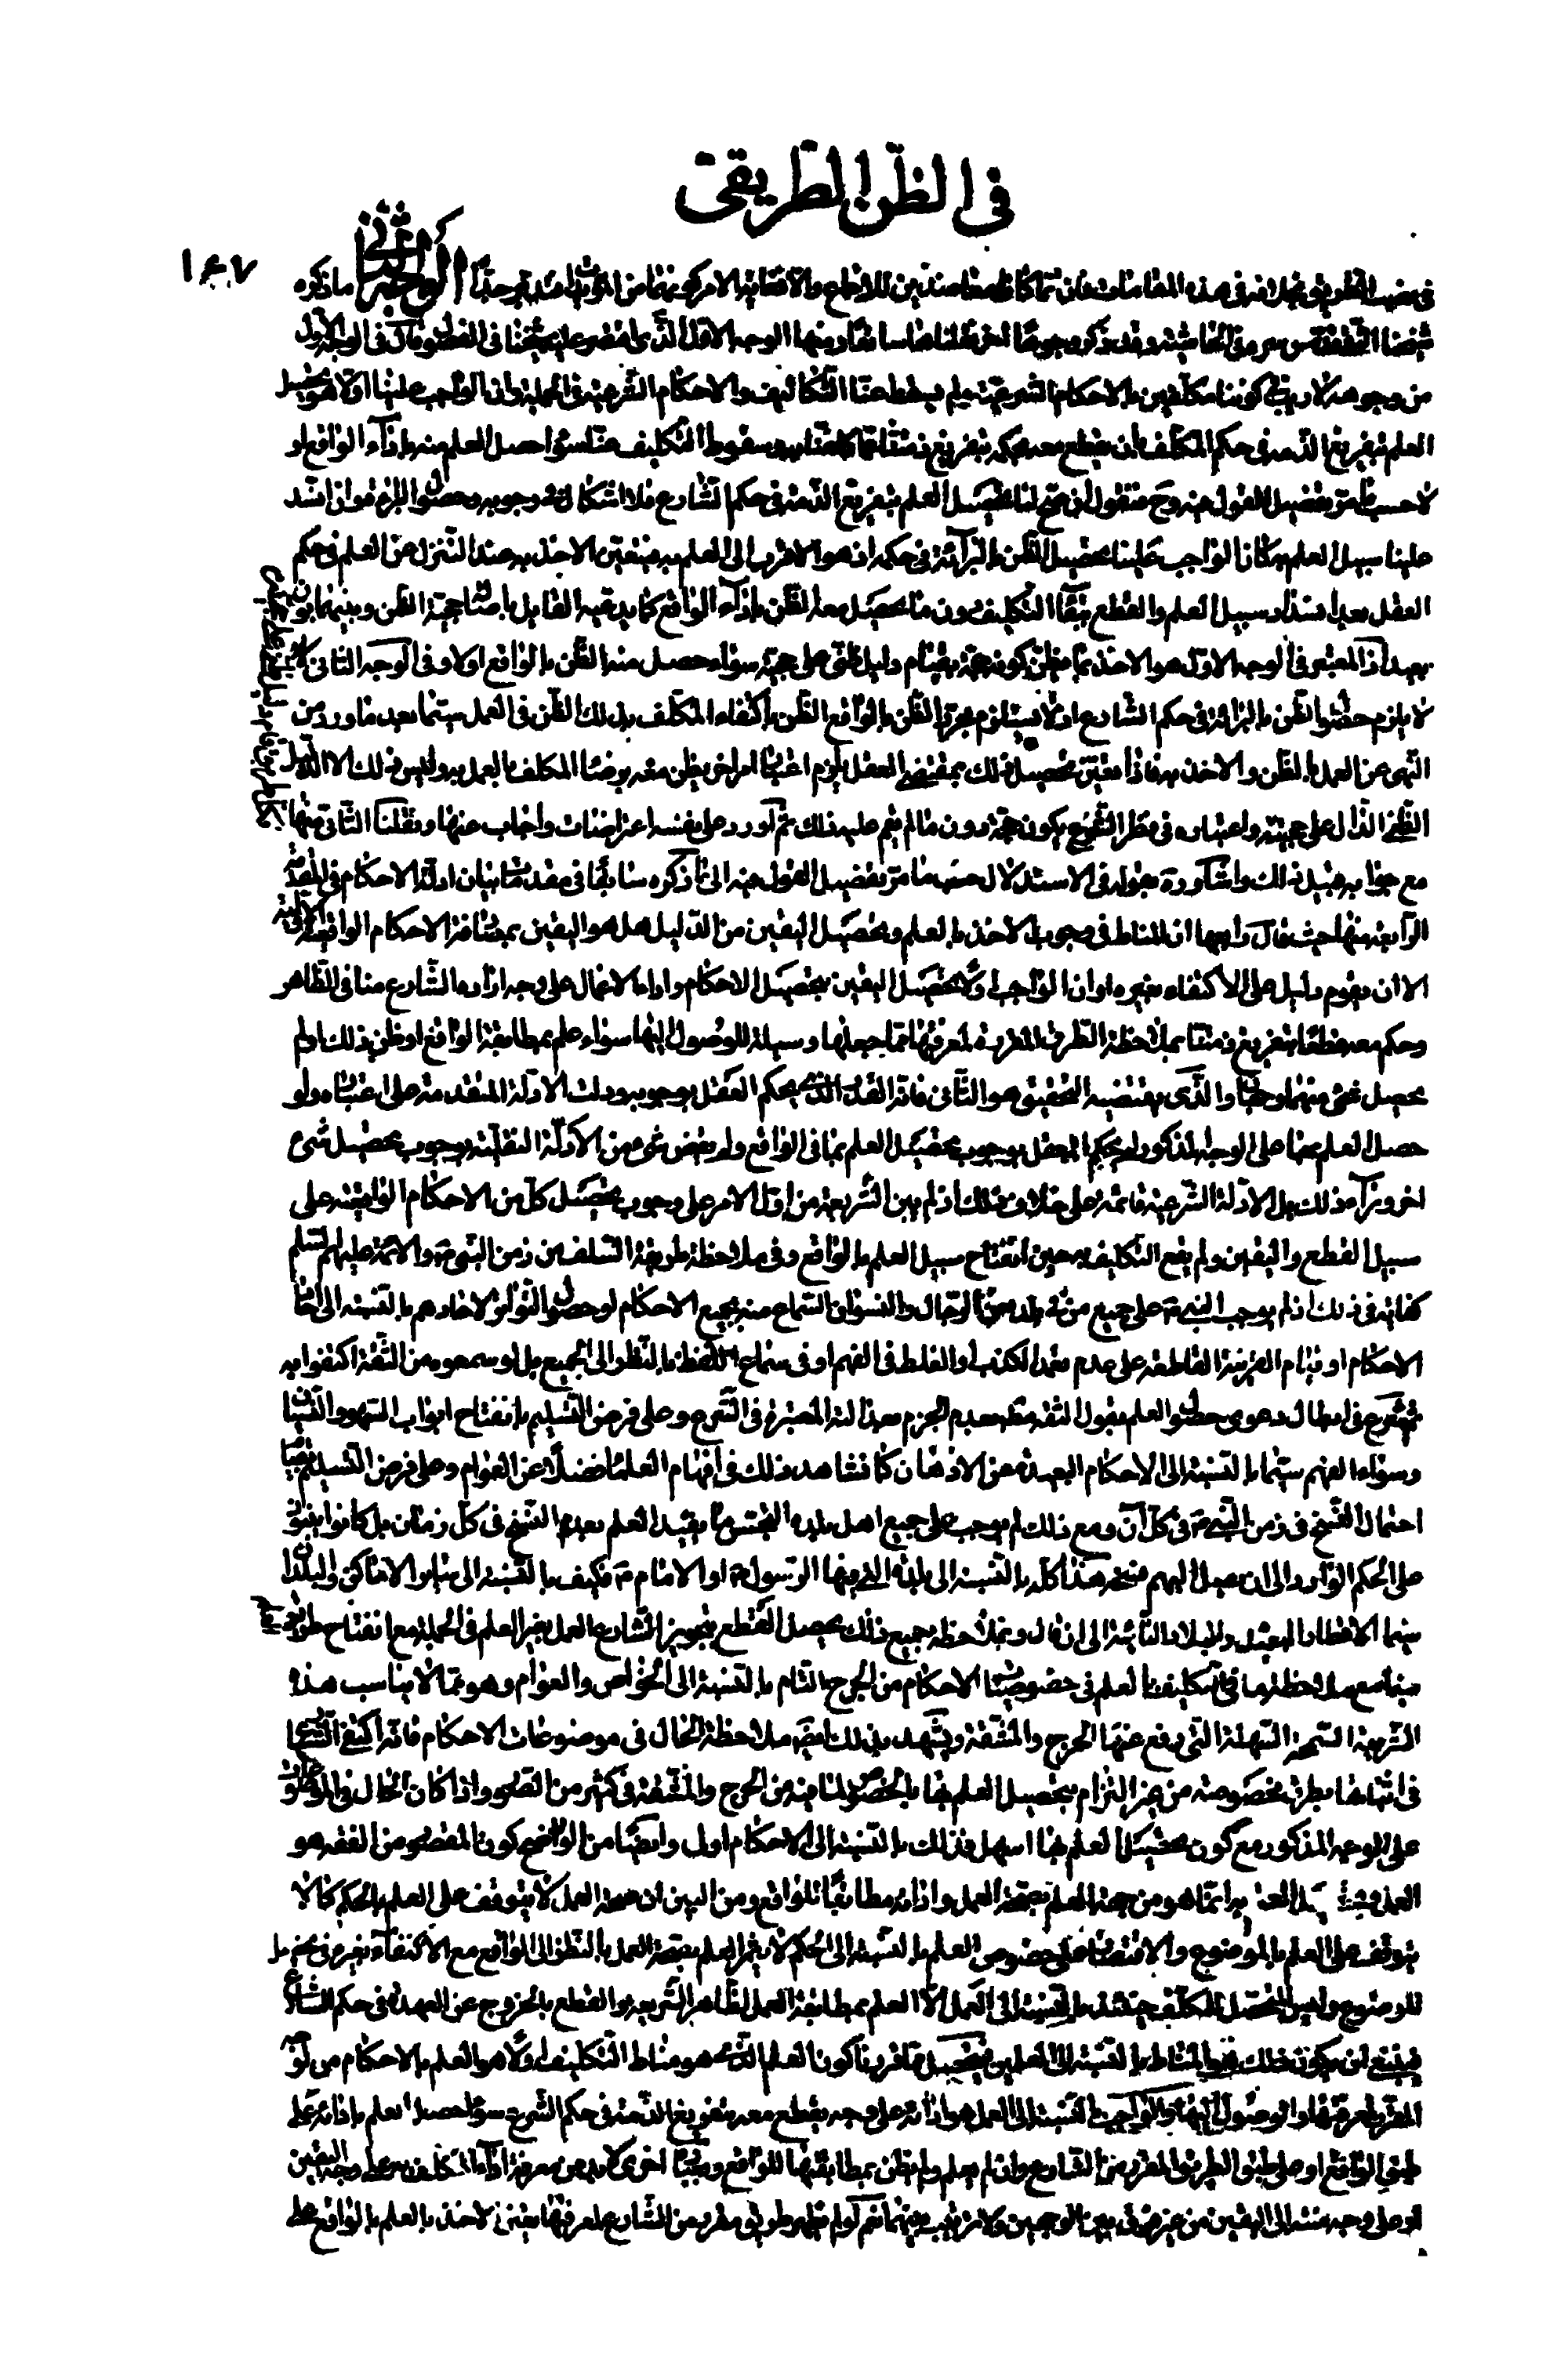 في الظن الطريقي
١٤٧
في نصب الطريق بخلافه في هذه المقامات الوجه الثاني ما ذكره
شيخنا المحقق قدس سره في الحاشية وقد ذكر وجوها اخر منها الوجه الاول الذي اقتصر عليه شيخنا في الفصول قال في الوجه الاول
من وجوهه لا ريب في كوننا مكلفين بالاحكام الشرعية ولم يسقط عنا التكاليف والاحكام الشرعية في الجملة وان الواجب علينا اولا هو تحصيل
العلم بتفريغ الذمة في حكم المكلف بان يقطع معه بحكمه بتفريغ ذمتنا عما كلفنا به وسقوط التكليف عنا سواء حصل العلم منه باداء الواقع او
لا حسبما مر تفصيل القول فيه وح فنقول ان صح لنا تحصيل العلم بتفريغ الذمة في حكم الشارع فلا اشكال في وجوبه وحصول البرائة به وان انسد
علينا سبيل العلم به كان الواجب علينا تحصيل الظن بالبرائة في حكمه اذ هو الاقرب الى العلم به فيتعين الاخذ به عند التنزل من العلم في حكم
العقل بعد انسداد سبيل العلم والقطع ببقاء التكليف دون ما يحصل معه الظن باداء الواقع كما يدعيه القائل باصالة حجية الظن وبينهما بون
بعيد اذ المعتبر في الوجه الاول هو الاخذ بما يظن كونه حجة بقيام دليل ظني على حجيته سواء حصل منه الظن بالواقع اولا وفي الوجه الثاني
لا يلزم حصول الظن بالبرائة في حكم الشارع اذ لا يستلزم مجرد الظن بالواقع الظن باكتفاء المكلف بذلك الظن في العمل سيما بعد ما ورد من
النهي عن العمل بالظن والاخذ به فاذا تعين تحصيل ذلك بمقتضى العقل يلزم اعتبار امر اخر يظن معه برضاء المكلف بالعمل به وليس ذلك الا الدليل
الظني الدال على حجيته واعتباره في نظر الشرع يكون حجة دون ما لم يقم عليه ذلك ثم اورد على نفسه اعتراضات واجاب عنها ونقلنا الثاني منها
مع جوابه قبيل ذلك واشار ره بقوله في الاستدلال حسبما مر تفصيل القول فيه الى ما ذكره سابقا في مقدمات بيان ادلة الاحكام في المقدمة
الرابعة منها حيث قال رابعها ان المناط في وجوب الاخذ بالعلم وتحصيل اليقين من الدليل هل هو اليقين بمصادفة الاحكام الواقعية الاولية
الا ان يقوم دليل على الاكتفاء بغيره او ان الواجب اولا تحصيل اليقين بتحصيل الاحكام واداء الاعمال على وجه اراده الشارع منا في الظاهر
وحكم معه قطعا بتفريغ ذمتنا بملاحظة الطرق المقررة لمعرفتها مما جعلها وسيلة للوصول اليها سواء علم بمطابقة الواقع او ظن بذلك او لم
يحصل شيء منهما وجهان والذي يقتضيه التحقيق هو الثاني فانه القدر الذي يحكم العقل بوجوبه ودلت الادلة المتقدمة على اعتباره ولو
حصل العلم بهما على الوجه المذكور لم يحكم العقل بوجوب تحصيل العلم بما في الواقع ولم يقض شيء من الادلة النقلية بوجوب تحصيل شيء
اخر وراء ذلك بل الادلة الشرعية قائمة على خلاف ذلك اذ لم يبن الشريعة من اول الامر على وجوب تحصيل كل من الاحكام الواقعية على
سبيل القطع واليقين ولم يقع التكليف به حين انفتاح سبيل العلم بالواقع وفي ملاحظة طريقة السلف من زمن النبي ص والائمة عليهم السلم
كفاية في ذلك اذ لم يوجب النبي ص على جميع من في بلده من الرجال والنسوان السماع منه بجميع الاحكام او حصول التواتر لاحادهم بالنسبة الى احاد
الاحكام او قيام القرينة القاطعة على عدم تعمد الكذب او الغلط في الفهم او في سماع اللفظ بالنظر الى الجميع بل لو سمعوه من الثقة اكتفوا به
ثم شرع في ابطال دعوى حصول العلم بقول الثقة مط بعدم الجزم بعدالته المعتبرة في الشرع وعلى فرض التسليم بانفتاح ابواب السهو والنسيان
وسوء الفهم سيما بالنسبة الى الاحكام البعيدة عن الاذهان كما نشاهد ذلك في افهام العلماء فضلا عن العوام وعلى فرض التسليم
احتمال النسخ في زمن النبي ص في كل آن ومع ذلك لم يوجب على جميع اهل بلده التجسس بما يفيد العلم بعدم النسخ في كل زمان بل كانوا يبنون
على الحكم الوارد الى ان يصل اليهم نسخه هذا كله بالنسبة الى بلدة التي فيها الرسول ص او الامام ع فكيف بالنسبة الى سائر الاماكن والبلدان
سيما الاقطار البعيدة والبلاد النائية الى ان قال وبملاحظة جميع ذلك يحصل القطع بتجويز الشارع العمل بغير العلم في الجملة مع انفتاح طريق
سيما مع ملاحظة ما في التكليف بالعلم في خصوصيات الاحكام من الحرج التام بالنسبة الى الخواص والعوام وهو مما لا يناسب هذه
الشريعة السمحة السهلة التي رفع عنها الحرج والمشقة ويشهد بذلك ايضا ملاحظة الحال في موضوعات الاحكام فانه اكتفى الشارع
في اثباتها بطرق مخصوصة من غير التزام بتحصيل العلم بها بالخصوص لما فيه من الحرج والمشقة في كثير من الصور واذا كان الحال في الموضوعات
على الوجه المذكور مع كون تحصيل العلم بها اسهل فذلك بالنسبة الى الاحكام اولى وايضا من الواضح كون المقصود من الفقه هو
العمل انما هو من جهة العلم بصحة العمل واداءه مطابقا للواقع ومن البين ان صحة العمل لا يتوقف على العلم بالحكم كما لا
يتوقف على العلم بالموضوع والاقتصار على خصوص العلم بالنسبة الى الحكم لا يثمر العلم بصحة العمل بالنظر الى الواقع مع الاكتفاء بغيره في تحصيل
الموضوع وليس المتحصل للمكلف حينئذ بالنسبة الى العمل الا العلم بمطابقة العمل لظاهر الشريعة والقطع بالخروج عن العهدة في حكم الشارع
فينبغي ان يكون ذلك هو المناط بالنسبة الى العلم فتحصل مما قررنا كون العلم الذي هو مناط التكليف اولا هو العلم بالاحكام من
المقرر لمعرفتها والوصول اليها والواجب بالنسبة الى العمل هو اداءه على وجه يقطع معه بتفريغ الذمة في حكم الشرع سواء حصل العلم باداءه على
طبق الواقع او على طبق الطريق المقرر من الشارع وان لم يعلم ولم يظن بمطابقتها للواقع وبعبارة اخرى لابد من معرفة اداء المكلف به على وجه اليقين
او على وجه منته الى اليقين من غير فرق بين الوجهين ولا ترتيب بينهما نعم لو لم يظهر طريق مقرر من الشارع لمعرفتها تعين الاخذ بالعلم بالواقع على